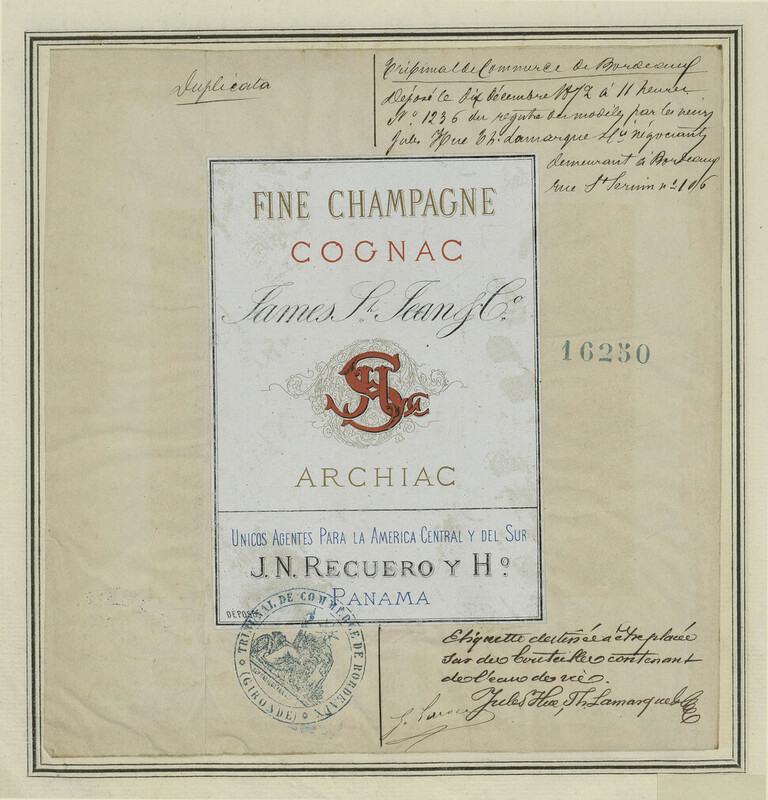 Duplicata
Tribunal de Commerce de Bordeaux
Déposé le dix décembre 1872 à 11 heures
N° 1236 du registre des modèles par les sieurs
Jules Hue Th. Lamarque & Cie négociants
demeurant à Bordeaux
rue St Seurin n° 106
FINE CHAMPAGNE
COGNAC
James St. Jean & Co.
16250
ARCHIAC
UNICOS AGENTES PARA LA AMERICA CENTRAL Y DEL SUR
J. N. RECUERO Y Ho.
PANAMA
DÉPOSÉ
TRIBUNAL DE COMMERCE DE BORDEAUX
(GIRONDE)
Etiquette destinée à être placée
sur des bouteilles contenant
de l'eau de vie.
Jules Hue, Th. Lamarque & Cie